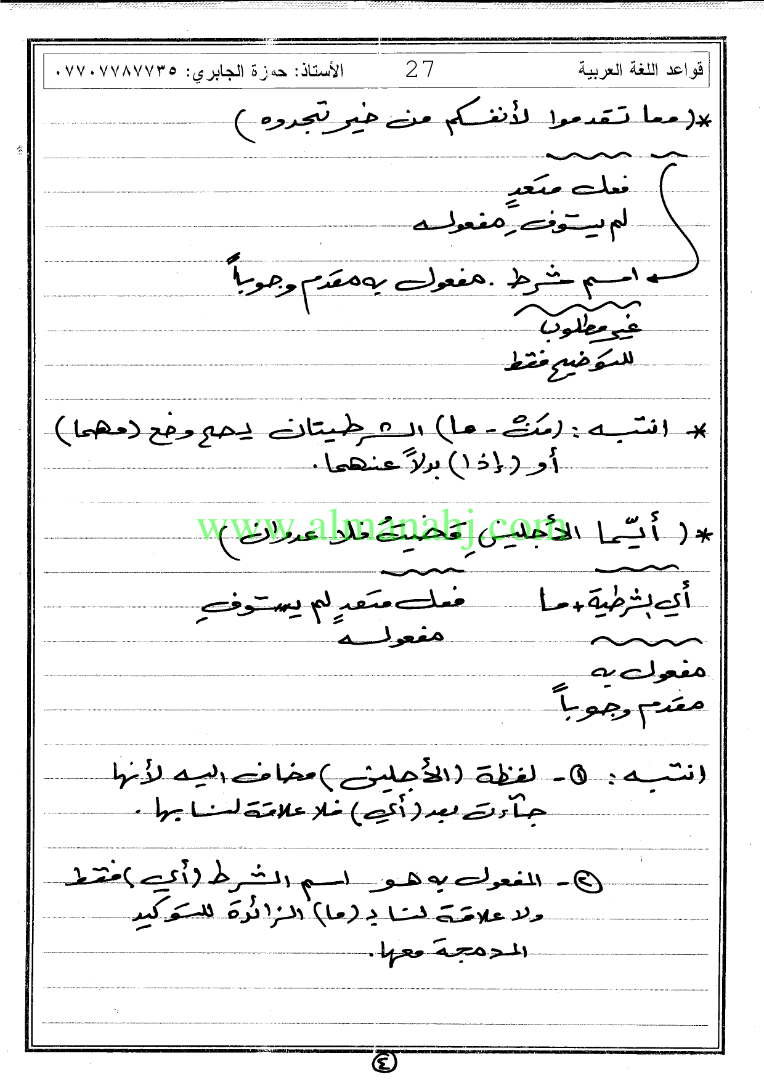 قواعد اللغة العربية 27 الأستاذ: حمزة الجابري: ٠٧٧٠٧٧٨٧٧٣٥
*( وما تقدموا لأنفسكم من خير تجدوه )
فعل متعدٍ
لم يستوفِ مفعوله
اسم شرط . مفعول به مقدم وجوباً
غير مطلوب
للتوضيح فقط
* انتبه : (مَنْ - ما) الشرطيتان يصح وضع (مهما)
أو (إذا) بدلاً عنهما.
www.almanahj.com
*( أيّما الأجلينِ قضيتُ فلا عدوان )
أي الشرطية + ما فعل متعدٍ لم يستوفِ
مفعوله
مفعول به
مقدم وجوباً
انتبه : ①- لفظة (الأجلين) مضاف اليه لأنها
جاءت بعد (أي) فلا علاقة لنا بها .
②- المفعول به هو اسم الشرط (أي) فقط
ولا علاقة لنا بـ (ما) الزائدة للتوكيد
المدمجة معها.
④